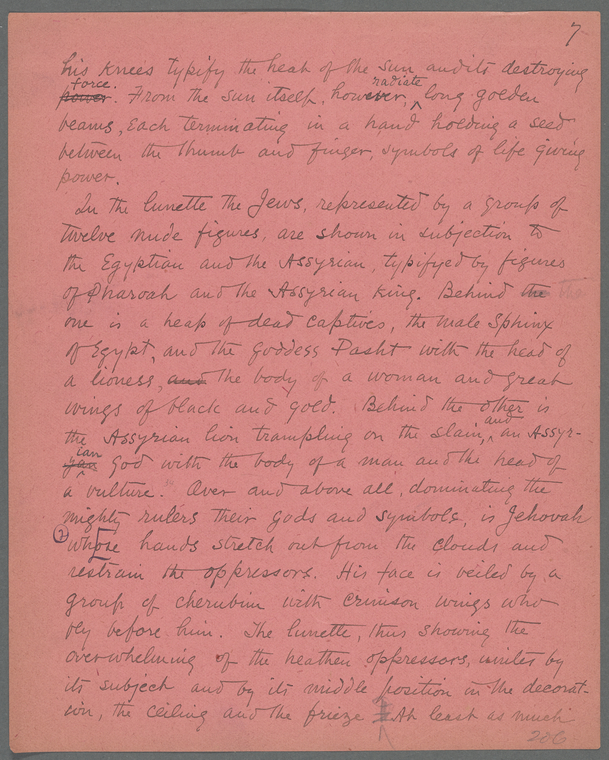 7
his knees typify the heat of the sun and its destroying
power force. From the sun itself, however, radiate long golden
beams, Each terminating in a hand holding a seed
between the thumb and finger, symbols of life giving
power.
In the lunette the Jews, represented by a group of
twelve nude figures, are shown in subjection to
the Egyptian and the Assyrian, typifyed by figures
of Pharoah and the Assyrian King. Behind the the
one is a heap of dead captives, the male Sphinx
of Egypt, and the goddess Pasht with the head of
a lioness, and the body of a woman and great
wings of black and gold. Behind the other is
the Assyrian lion trampling on the slain, and an Assyr-
ian God with the body of a man and the head of
a vulture. Over and above all, dominating the
mighty rulers their gods and symbols, is Jehovah
whose hands stretch out from the clouds and
restrain the oppressors. His face is veiled by a
group of cherubim with crimson wings who
fly before him. The lunette, thus showing the
overwhelming of the heathen oppressors, unites by
its subject and by its middle position in the decorat-
ion, the ceiling and the frieze At least as much
206